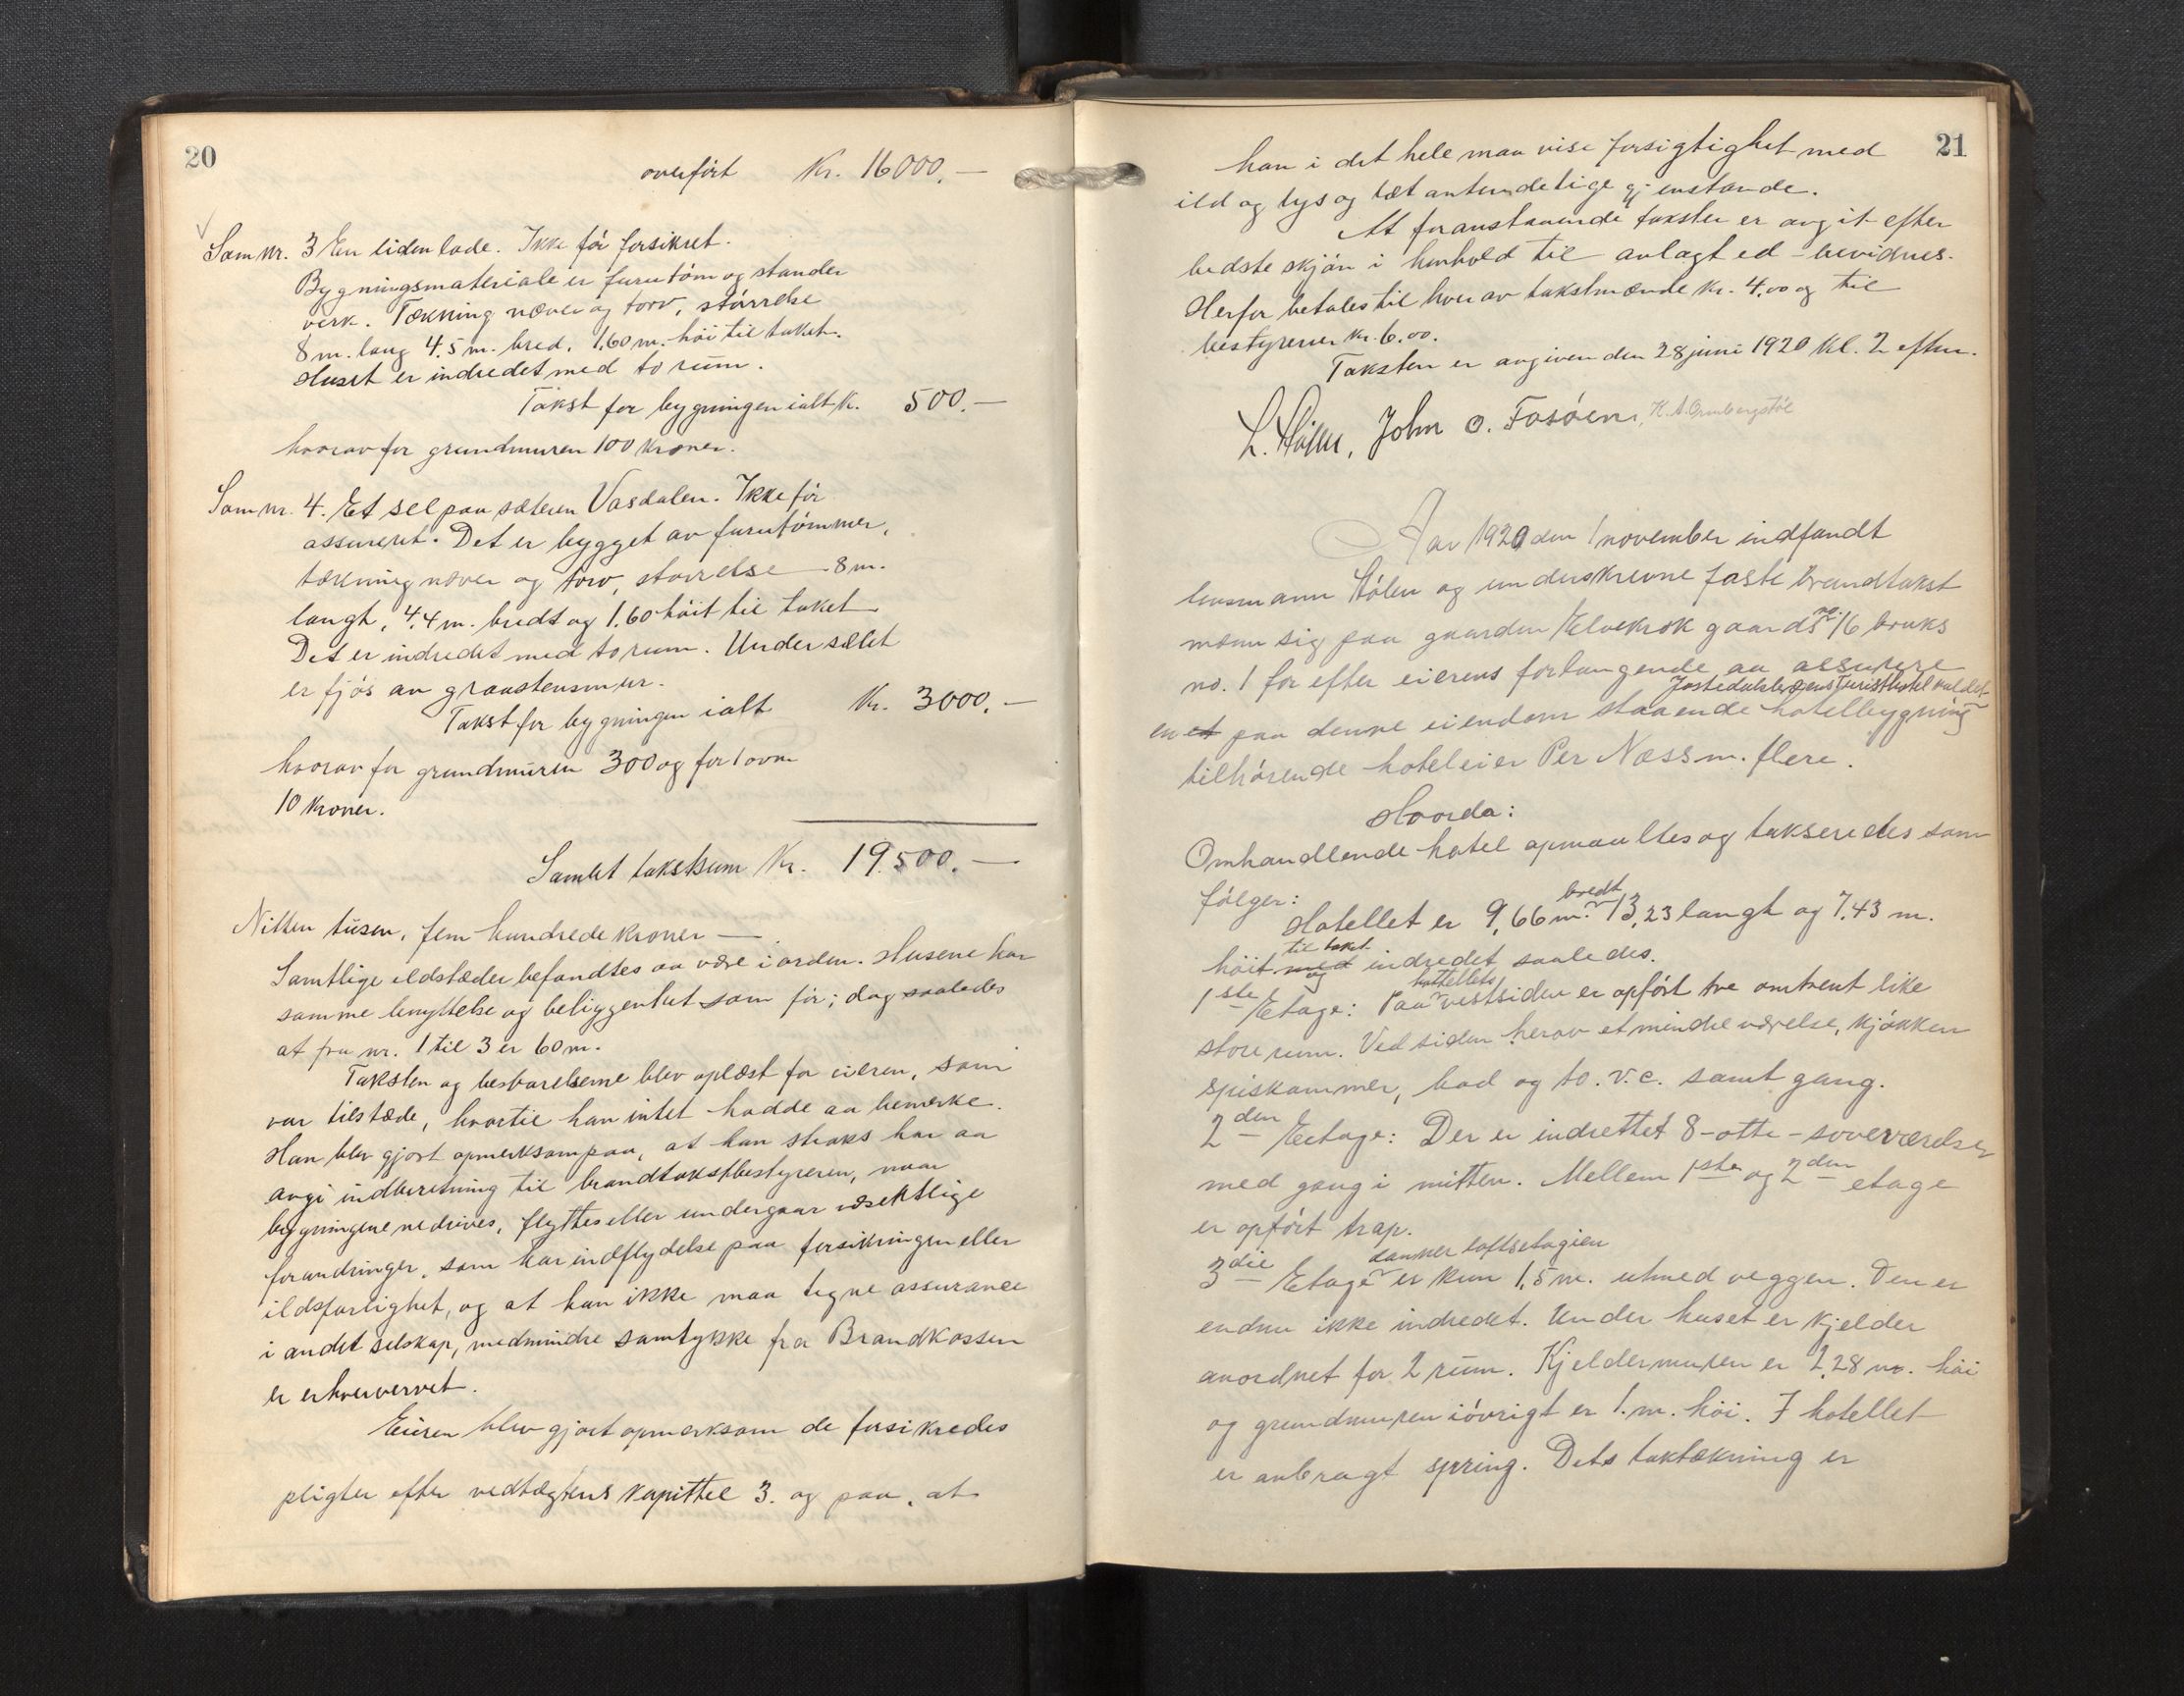 20
overført Kr. 16000.—
Som nr. 3 En liden lade. Ikke før forsikret.
Bygningsmateriale er furutøm og stander
verk. Tækning næver og torv, størrelse
8 m. lang 4.5 m. bred. 1.60 m. høi til taket.
Huset er indredet med to rum.
Takst for bygningen ialt k. 500.—
hvorav for grundmuren 100 kroner.
Som nr. 4. Et sel paa sæteren Vasdalen. Ikke før
assureret. Det er bygget av furutømmer,
tækning næver og torv, størrelse 8 m.
langt, 4.4 m. bredt og 1.60 høit til taket
Det er indredet med to rum. Under sælet
er fjøs av graastensmur.
Takst for bygningen ialt Kr. 3000.—
hvorav for grundmuren 300 og for 1 ovn
10 kroner.
Samlet takstsum Kr. 19.500.—
Nitten tusen, fem hundrede kroner —
Samtlige ildstæder befandtes aa være i orden. Husene har
samme benyttelse og beliggenhet som før; dog saaledes
at fra nr. 1 til 3 er 60 m.
Taksten og besvarelserne blev oplæst for eieren, som
var tilstæde, hvortil han intet hadde aa bemerke.
Han blev gjort opmerksom paa, at han straks har aa
avgi indberetning til brandtakstbestyreren, naar
bygningene nedrives, flyttes eller undergaar væsentlige
forandringer, som har indflydelse paa forsikringen eller
ildsfarlighet, og at han ikke maa tegne assurance
i andet selskap, medmindre samtykke fra Brandkassen
er erhvervet.
Eieren blev gjort opmerksom de forsikredes
pligter efter vedtægtens kapittel 3. og paa, at
21
han i det hele maa vise forsigtighet med
ild og lys og let antendelige gjenstande.
At foranstaaende takster er avgit efter
bedste skjøn i henhold til avlagt ed - bevidnes.
Herfor betales til hver av takstmænde kr. 4.00 og til
bestyreren kr. 6.00.
Taksten er avgiven den 28 juni 1920 kl. 2 efterm.
L. Hølen, John O. Fosøen, K. A. Ormbergstøl
Aar 1920 den 1 november indfandt
lensmann Hølen og underskrevne faste brandtakst
mænn sig paa gaarden Elvekrok gaards no. 16 bruks
no. 1 for efter eierens forlangende aa assurere
Jostedalsbræens Turisthotel kaldet
en et paa denne eiendom staaende hotelbygning
tilhørende hoteleier Per Næss m. flere.
Hvorda:
Omhandlende hotel opmaaltes og takseredes som
følger:
bredt
Hotellet er 9,66 m. 13,23 langt og 7.43 m.
til taket
høit med og indredet saaledes.
hotellets
1ste Etage: Paa vestsiden er opført tre omtrent like
store rum. Ved siden herav et mindre værelse, kjøkken
spiskammer, bad og to. v.c. samt gang.
2den Etage: Der er indrettet 8 - otte - soveværelser
med gang i mitten. Mellem 1ste og 2den etage
er opført trap.
danner loftsetagien
3die Etage er kun 1,5 m. utmed veggen. Den er
endnu ikke indredet. Under huset er kjelder
anordnet for 2 rum. Kjeldermuren er 2,28 m. høi
og grundmuren iøvrigt er 1. m. høi. I hotellet
er anbragt spring. Dets taktækning er